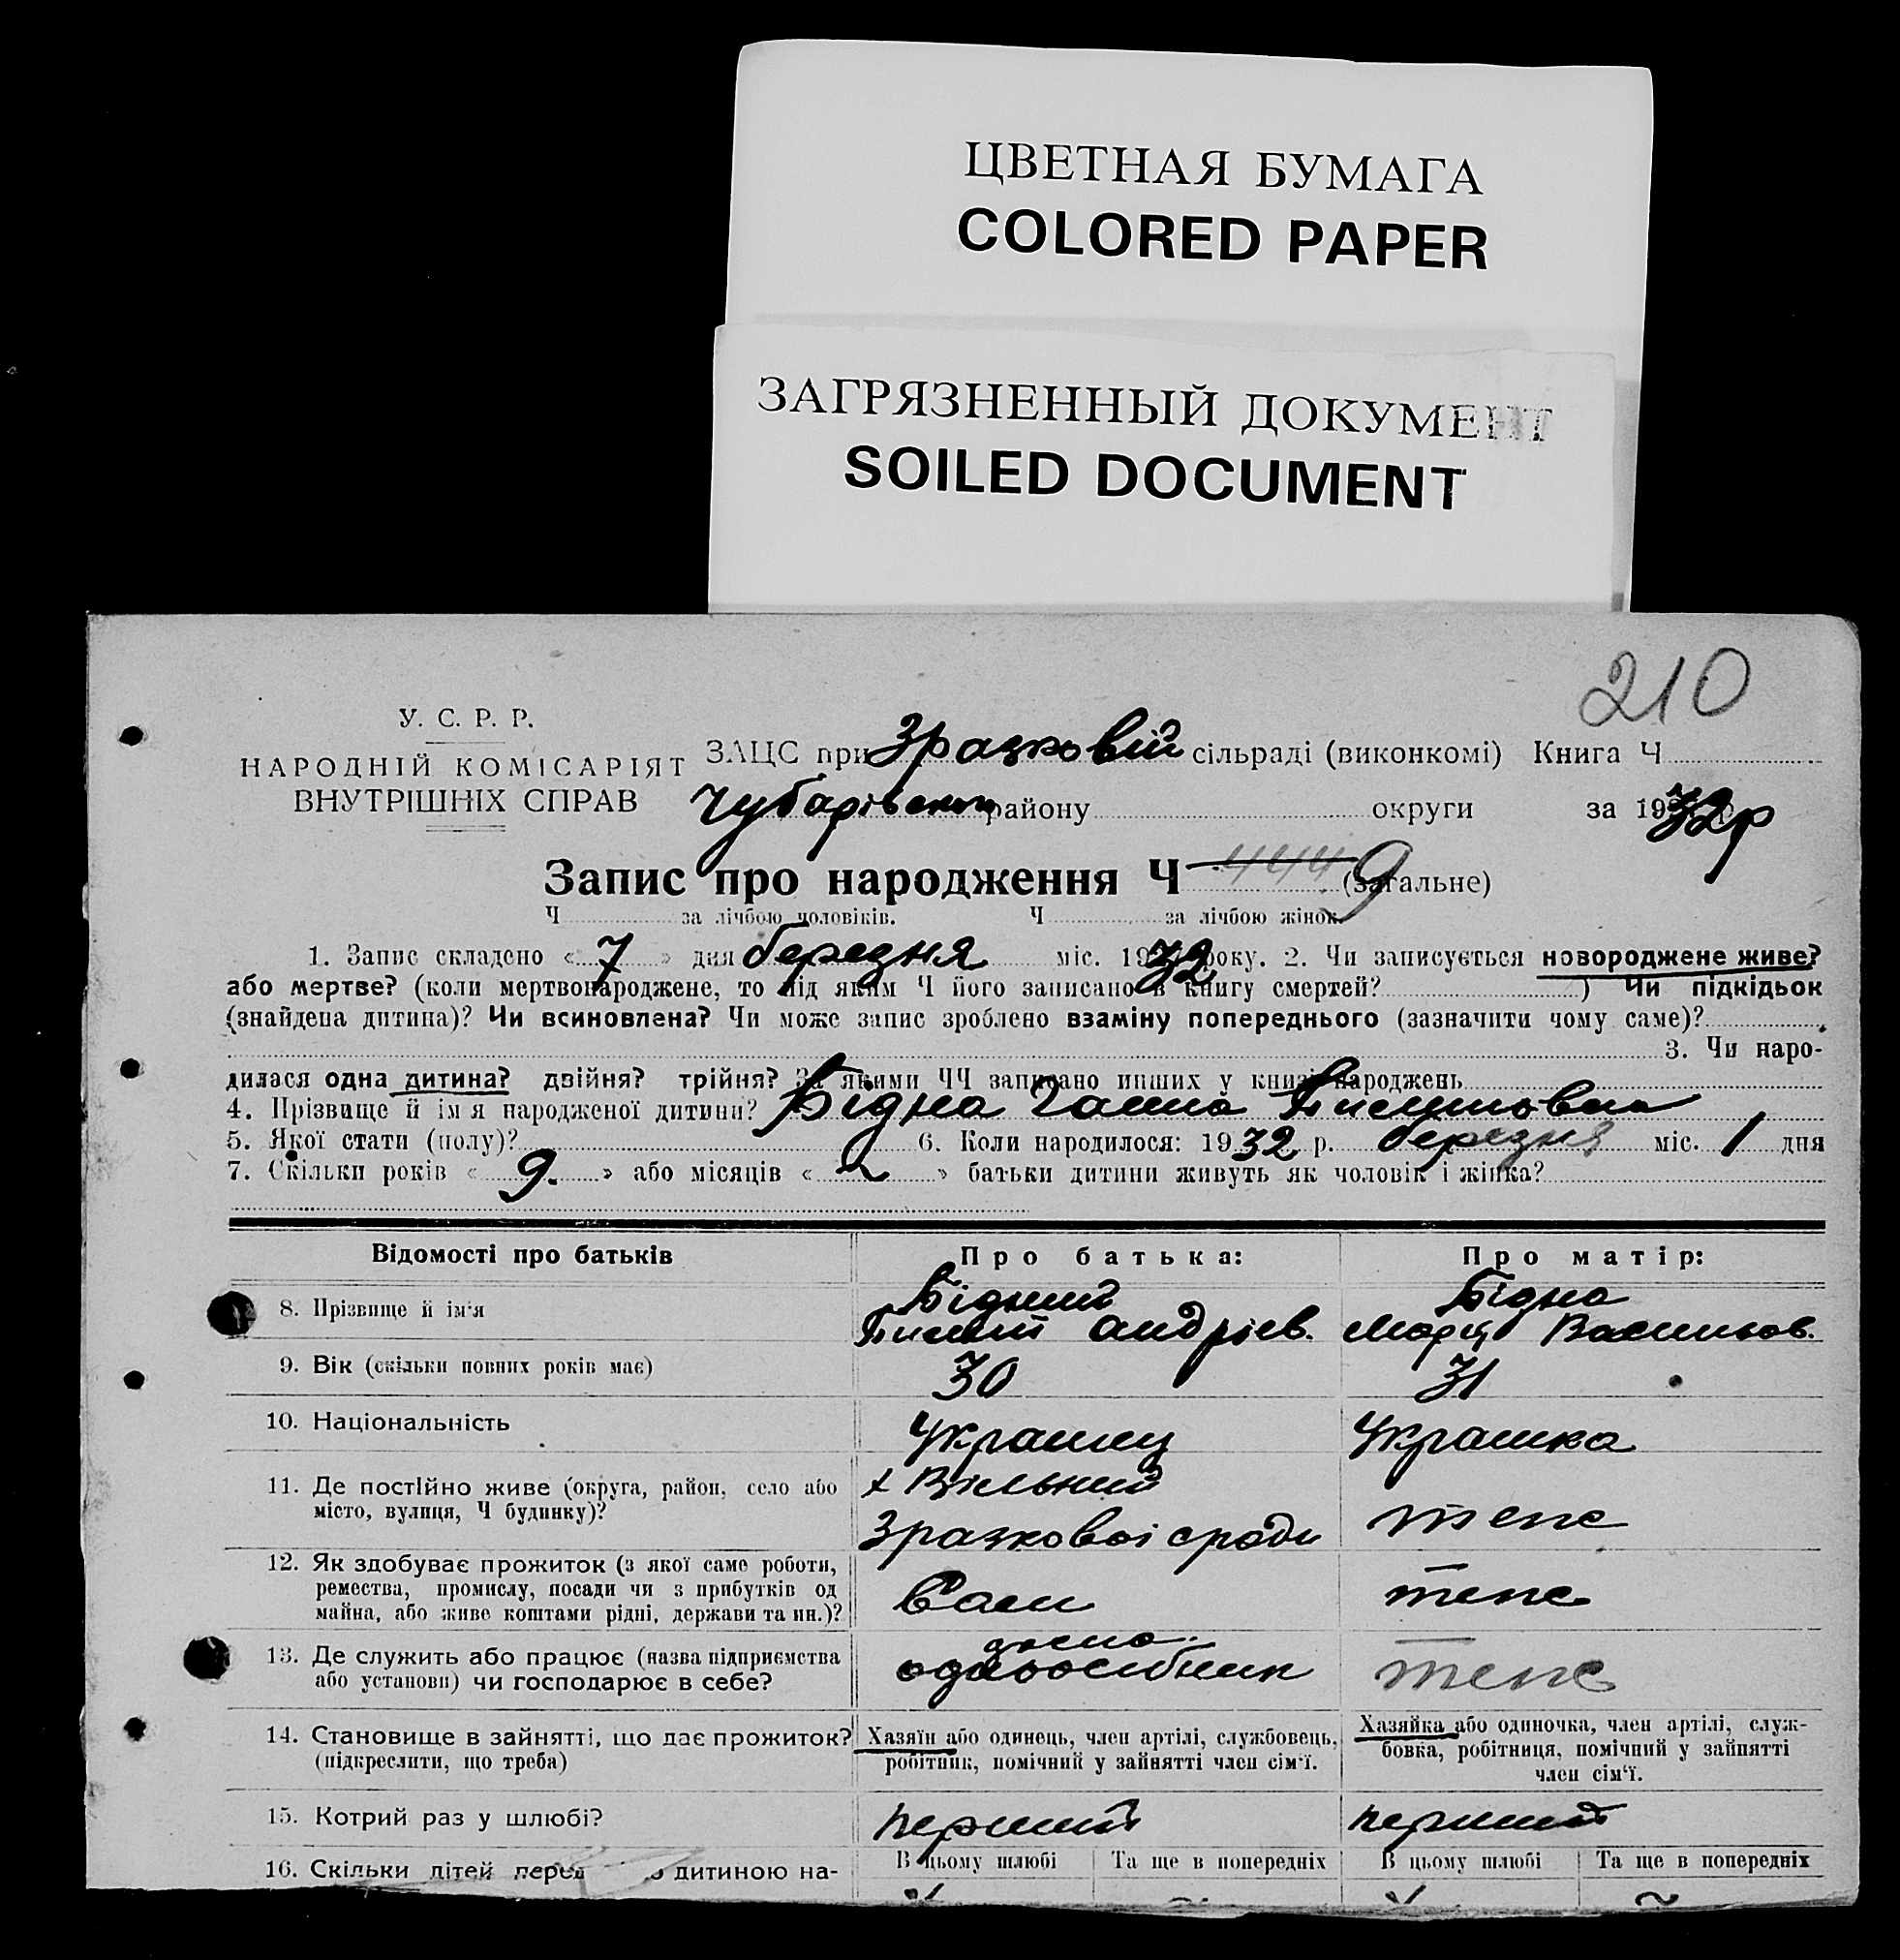 ЦВЕТНАЯ БУМАГА
COLORED PAPER
ЗАГРЯЗНЕННЫЙ ДОКУМЕНТ
SOILED DOCUMENT
210
У. С. Р. Р.
НАРОДНІЙ КОМІСАРІЯТ
ВНУТРІШНІХ СПРАВ
ЗАЦС при Зразковій сільраді (виконкомі) Книга Ч
Чубарівського району округи за 1932р
Запис про народження Ч 9 (загальне)
Ч за лічбою чоловіків. Ч за лічбою жінок.
1. Запис складено « 7 » дня березня міс. 1932 року. 2. Чи записується новороджене живе?
або мертве? (коли мертвонароджене, то під яким Ч його записано в книгу смертей? ) Чи підкідьок
(знайдена дитина)? Чи всиновлена? Чи може запис зроблено взаміну попереднього (зазначити чому саме)?
3. Чи наро-
дилася одна дитина? двійня? трійня? За якими ЧЧ записано инших у книзі народжень
4. Прізвище й ім я народженої дитини? Бідна Ганна
5. Якої стати (полу)? 6. Коли народилося: 1932 р. березня міс. 1 дня
7. Скільки років « 9. » або місяців « ~ » батьки дитини живуть як чоловік і жінка?
Відомості про батьків
Про батька:
Про матір:
8. Прізвище й ім'я
Бідний
Андріев.
Бідна
Васильов.
9. Вік (скільки повних років має)
30
31
10. Національність
Українец
Українка
11. Де постійно живе (округа, район, село або
місто, вулиця, Ч будинку)?
х Вільний
Зразковоі сради
теж
12. Як здобуває прожиток (з якої саме роботи,
ремества, промислу, посади чи з прибутків од
майна, або живе коштами рідні, держави та ин.)?
теж
13. Де служить або працює (назва підприємства
або установи) чи господарює в себе?
одноосібник
теж
14. Становище в зайнятті, що дає прожиток?
(підкреслити, що треба)
Хазяїн або одинець, член артілі, службовець,
робітник, помічний у зайнятті член сім'ї.
Хазяйка або одиночка, член артілі, служ-
бовка, робітниця, помічний у зайнятті
член сім'ї.
15. Котрий раз у шлюбі?
перший
перший
16. Скільки дітей перед дитиною на-
В цьому шлюбі
Та ще в попередніх
В цьому шлюбі
Та ще в попередніх